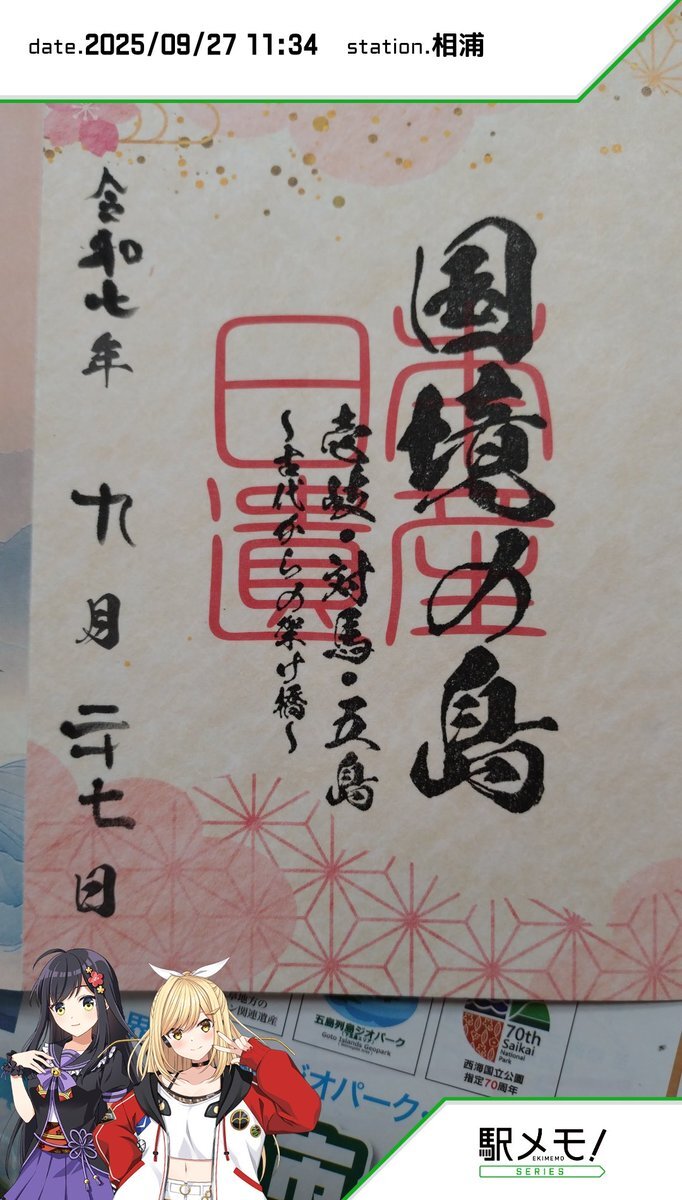 date.2025/09/27 11:34 station.相浦
国境の島
壱岐・対馬・五島
〜古代からの架け橋〜
日本遺産
令和七年 九月 二十七日
地方の
ン関連遺産
五島列島ジオパーク
Goto Islands Geopark
70th
Saikai
National
Park
西海国立公園
指定70周年
ジオパーク・
駅メモ!
EKIMEMO
SERIES